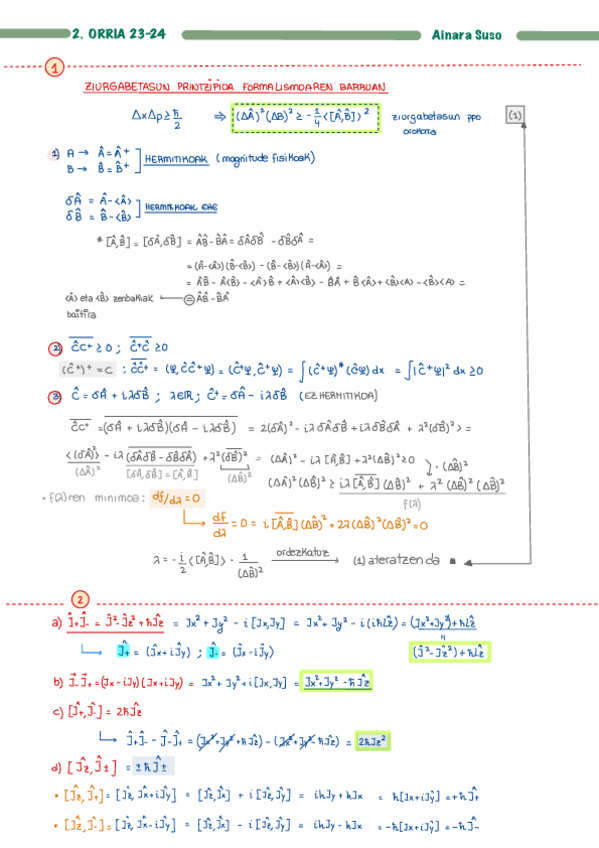 2. ORRIA 23-24
Ainara Suso
1
ZIURGABETASUN PRINTZIPIOA FORMALISMOAREN BARRUAN
ΔxΔp ≥ ħ/2 ⇒ (ΔÂ)²(ΔB̂)² ≥ -1/4 <[Â,B̂]>² ziurgabetasun ppo orokorra (1)
1) A → Â=Â⁺
B → B̂=B̂⁺
HERMITIKOAK (magnitude fisikoak)
δÂ = Â-<Â>
δB̂ = B̂-<B̂>
HERMITIKOAK ERE
* [Â,B̂] = [δÂ,δB̂] = ÂB̂-B̂Â = δÂδB̂ - δB̂δÂ =
= (Â-<Â>)(B̂-<B̂>) - (B̂-<B̂>)(Â-<Â>) =
= ÂB̂ - Â<B̂> - <Â>B̂ + <Â><B̂> - B̂Â + B̂<Â> + <B̂>Â - <B̂><Â> =
<Â> eta <B̂> zenbakiak baitira
= ÂB̂ - B̂Â
2) ĈC⁺ ≥ 0 ; Ĉ⁺Ĉ ≥ 0
(Ĉ⁺)⁺ = C ; ĈĈ⁺ = (Ψ, ĈĈ⁺Ψ) = (Ĉ⁺Ψ, Ĉ⁺Ψ) = ∫(Ĉ⁺Ψ)* (Ĉ⁺Ψ) dx = ∫|Ĉ⁺Ψ|² dx ≥ 0
3) Ĉ = δÂ + iλδB̂ ; λ∈ℝ ; Ĉ⁺ = δÂ - iλδB̂ (EZ HERMITIKOA)
ĈC⁺ = (δÂ + iλδB̂)(δÂ - iλδB̂) = <(δÂ)² - iλδÂδB̂ + iλδB̂δÂ + λ²(δB̂)²> =
<(δÂ)²> - iλ (δÂδB̂ - δB̂δÂ) + λ²(δB̂)² = (ΔÂ)² - iλ[Â,B̂] + λ²(ΔB̂)² ≥ 0
(ΔÂ)² [δÂ,δB̂] = [Â,B̂] (ΔB̂)² · (ΔB̂)²
(ΔÂ)²(ΔB̂)² ≥ iλ[Â,B̂](ΔB̂)² + λ²(ΔB̂)²(ΔB̂)²
f(λ)
· f(λ)ren minimoa: df/dλ = 0
df/dλ = 0 = i[Â,B̂](ΔB̂)² + 2λ(ΔB̂)²(ΔB̂)² = 0
λ = -i/2 <[Â,B̂]> · 1/(ΔB̂)² ordezkatuz (1) ateratzen da ■
2
a) Ĵ₊Ĵ₋ = Ĵ² - Ĵz² + ħĴz = Jx² + Jy² - i[Jx,Jy] = Jx² + Jy² - i(iħLz) = (Jx²+Jy²)+ħLz
Ĵ₊ = (Jx+iJy) ; Ĵ₋ = (Jx-iJy) (Ĵ²-Jz²)+ħLz
b) Ĵ₋Ĵ₊ = (Jx-iJy)(Jx+iJy) = Jx² + Jy² + i[Jx,Jy] = Jx² + Jy² - ħJz
c) [Ĵ₊,Ĵ₋] = 2ħJz
Ĵ₊Ĵ₋ - Ĵ₋Ĵ₊ = (Jx²+Jy²+ħJz) - (Jx²+Jy²-ħJz) = 2ħJz²
d) [Ĵz,Ĵ±] = ±ħĴ±
· [Ĵz,Ĵ₊] = [Ĵz,Jx+iJy] = [Ĵz,Jx] + i[Ĵz,Jy] = iħJy + ħJx = ħ[Jx+iJy] = +ħJ₊
· [Ĵz,Ĵ₋] = [Ĵz,Jx-iJy] = [Ĵz,Jx] - i[Ĵz,Jy] = iħJy - ħJx = -ħ[Jx+iJy] = -ħJ₋